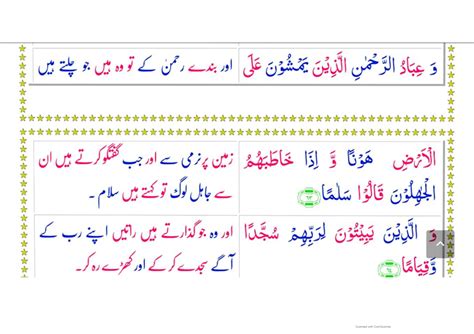 وَ عِبَادُ الرَّحْمٰنِ الَّذِيْنَ يَمْشُوْنَ عَلَى
اور بندے رحمٰن کے تو وہ ہیں جو چلتے ہیں
الْاَرْضِ هَوْنًا وَّ اِذَا خَاطَبَهُمُ
الْجٰهِلُوْنَ قَالُوْا سَلٰمًا ﴿۶۳﴾
زمین پر نرمی سے اور جب گفتگو کرتے ہیں ان
سے جاہل لوگ تو کہتے ہیں سلام۔
وَ الَّذِيْنَ يَبِيْتُوْنَ لِرَبِّهِمْ سُجَّدًا
وَّقِيَامًا ﴿۶۴﴾
اور وہ جو گذارتے ہیں راتیں اپنے رب کے
آگے سجدے کر کے اور کھڑے رہ کر۔